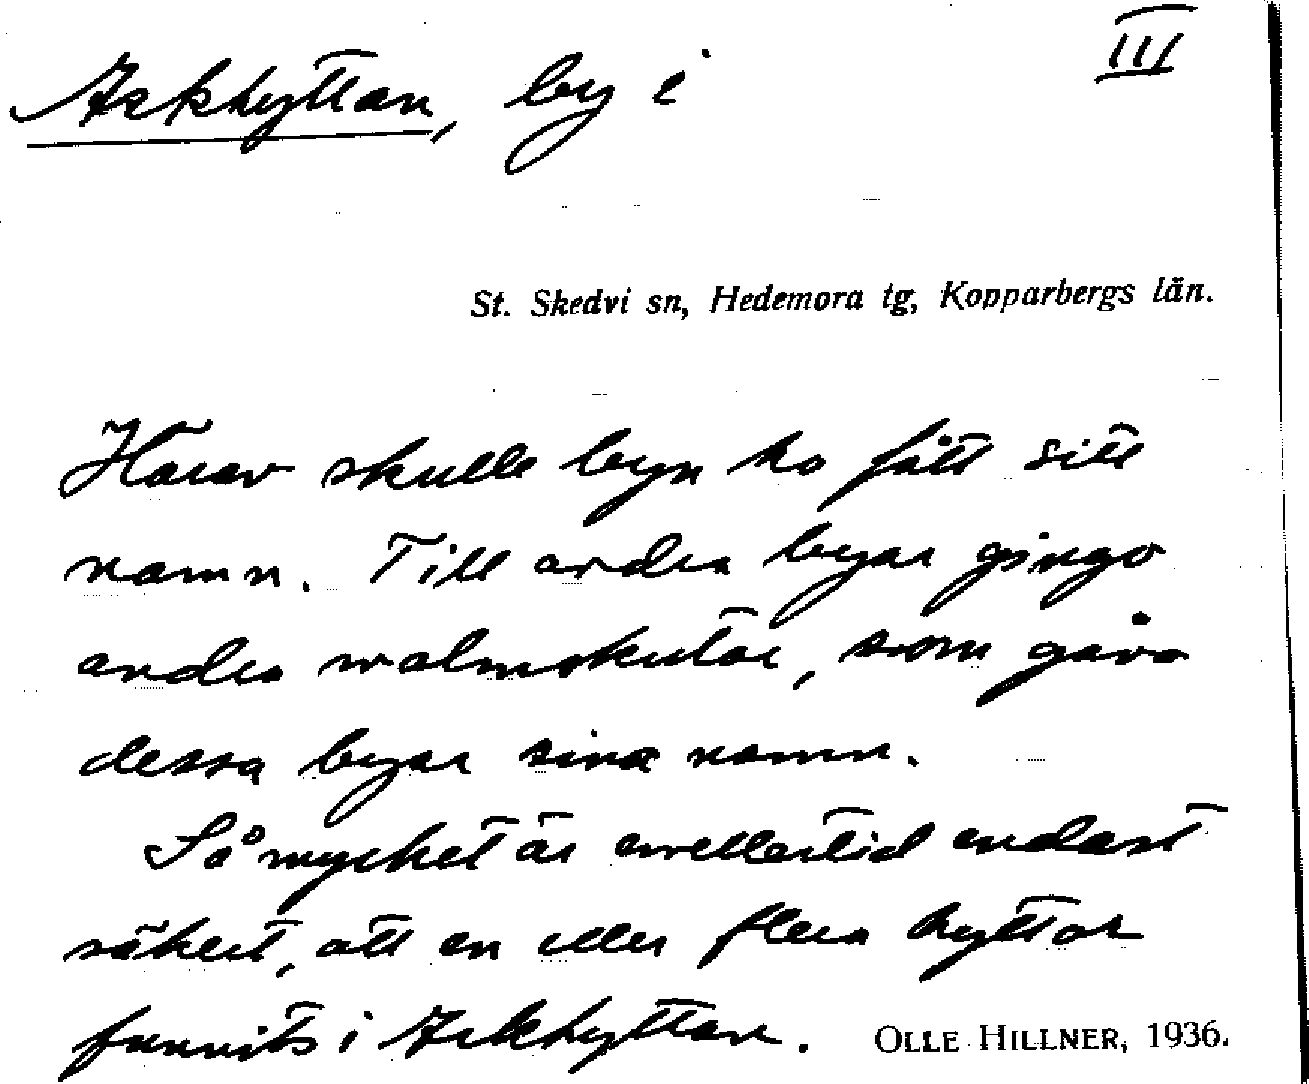 Askhyttan, by i
III
St. Skedvi sn, Hedemora tg, Kopparbergs län.
Härav skulle byn ha fått sitt
namn. Till andra byar gingo
andra malmskutor, som gåvo
dessa byar sina namn.
Så mycket är emellertid endast
säkert, att en eller flera hyttor
funnits i Askhyttan.
OLLE HILLNER, 1936.